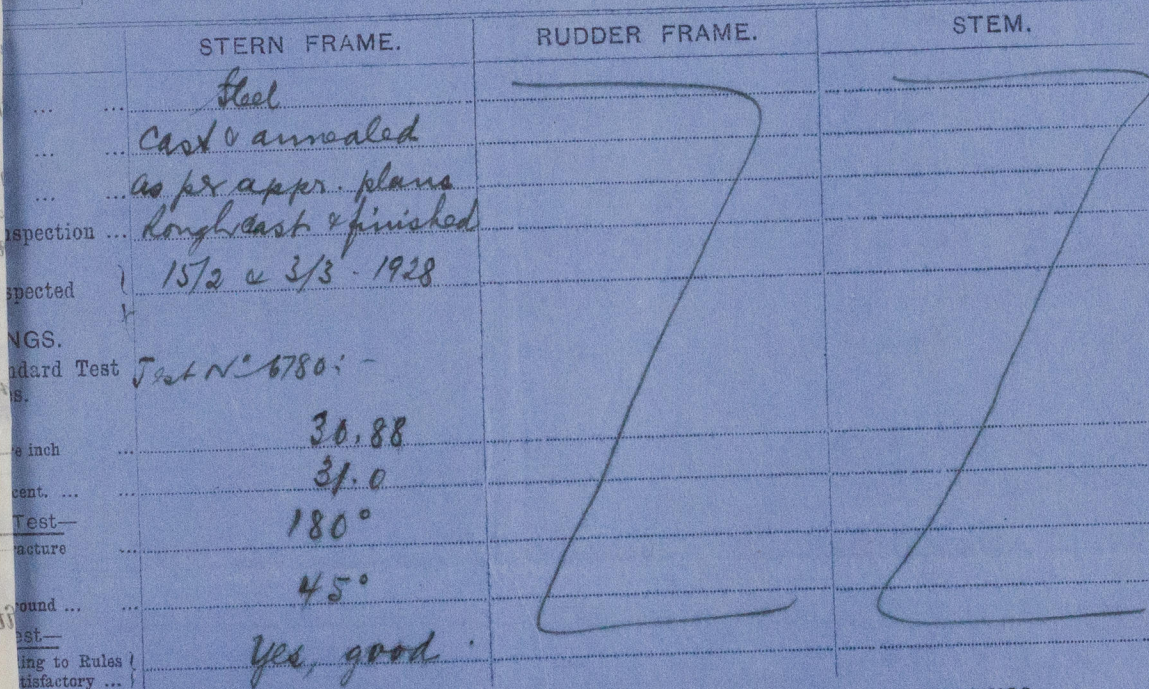 STERN FRAME. RUDDER FRAME. STEM.
... ... Steel
... ... Cast & annealed
... ... as per appr. plans
nspection ... Rough cast & finished
spected 15/2 & 3/3 - 1928
NGS.
ndard Test Test No 6780: -
s.
e inch ... 30.88
cent. ... ... 31.0
Test— 180°
racture ...
ound ... ... 45°
est—
ing to Rules Yes, good.
tisfactory ...